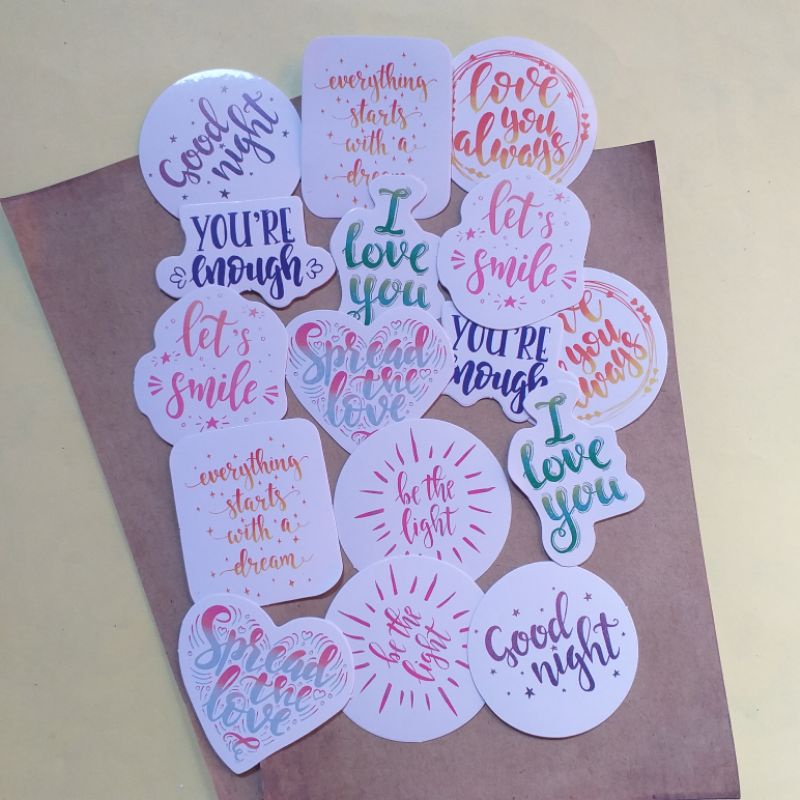 Good
night
everything
starts
with a
dream
love
you
always
YOU'RE
enough
I
love
you
let's
smile
let's
smile
Spread
the
love
YOU'RE
enough
love
you
always
everything
starts
with a
dream
be the
light
I
love
you
Spread
the
love
be the
light
Good
night